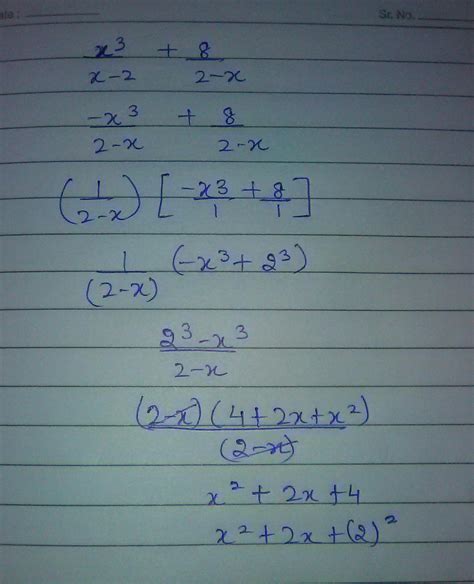 ate : ________ Sr. No. ________
x³/(x-2) + 8/(2-x)
-x³/(2-x) + 8/(2-x)
(1/(2-x)) [-x3/1 + 8/1]
1/(2-x) (-x³ + 2³)
(2³ - x³)/(2-x)
(2-x)(4+2x+x²)/(2-x)
x² + 2x + 4
x² + 2x + (2)²